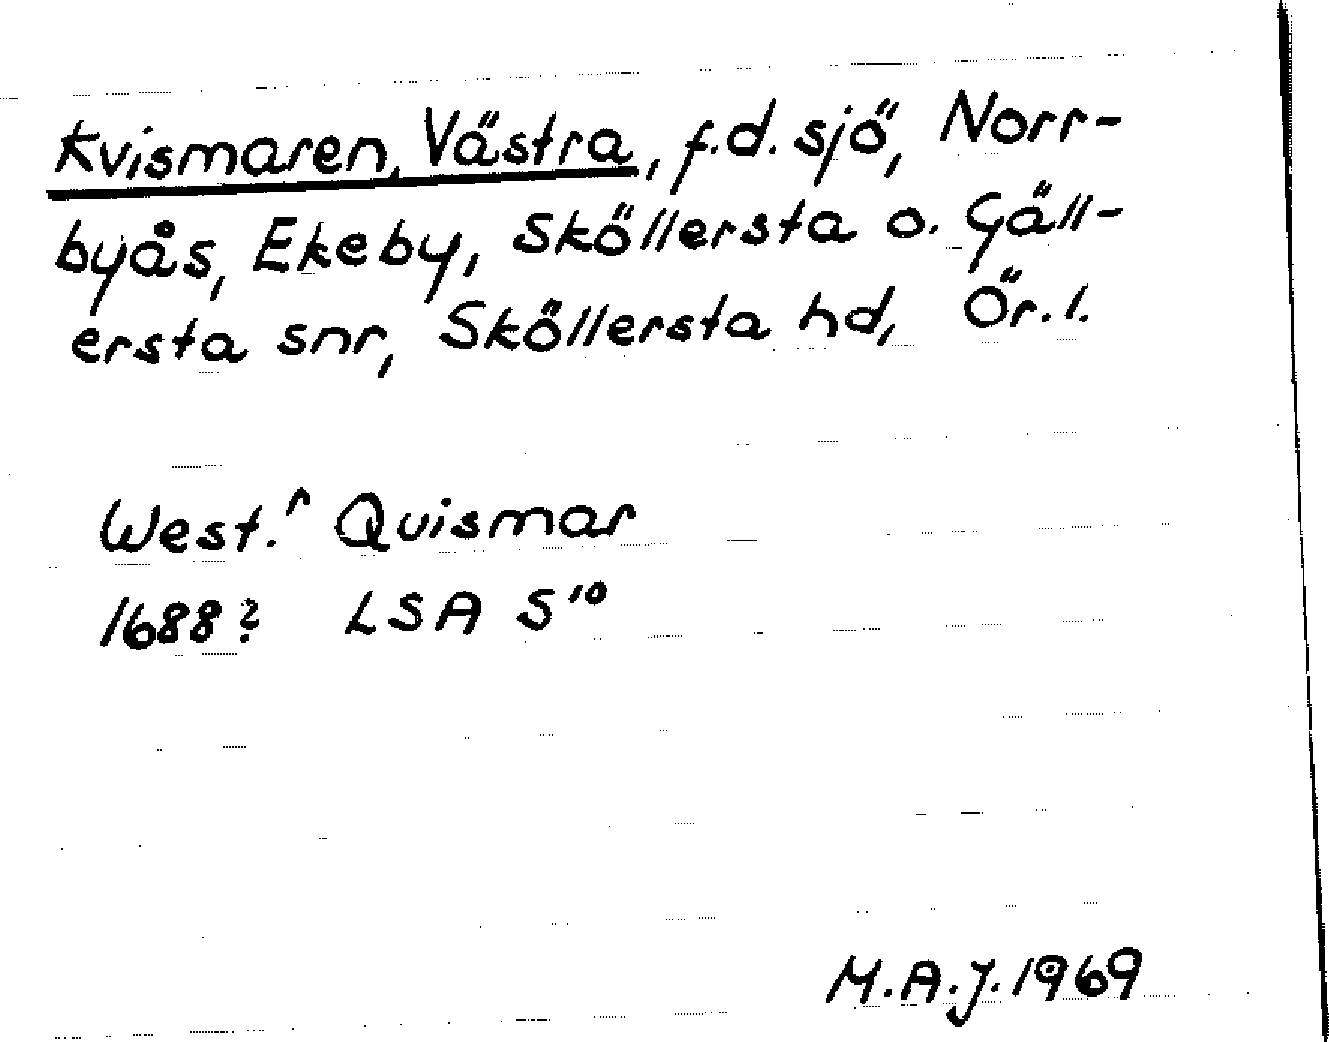 Kvismaren, Västra, f.d. sjö, Norr-
byås, Ekeby, Sköllersta o. Gäll-
ersta snr, Sköllersta hd, Ör. l.
West.r Quismar
1688? LSA S10
M.A.J. 1969